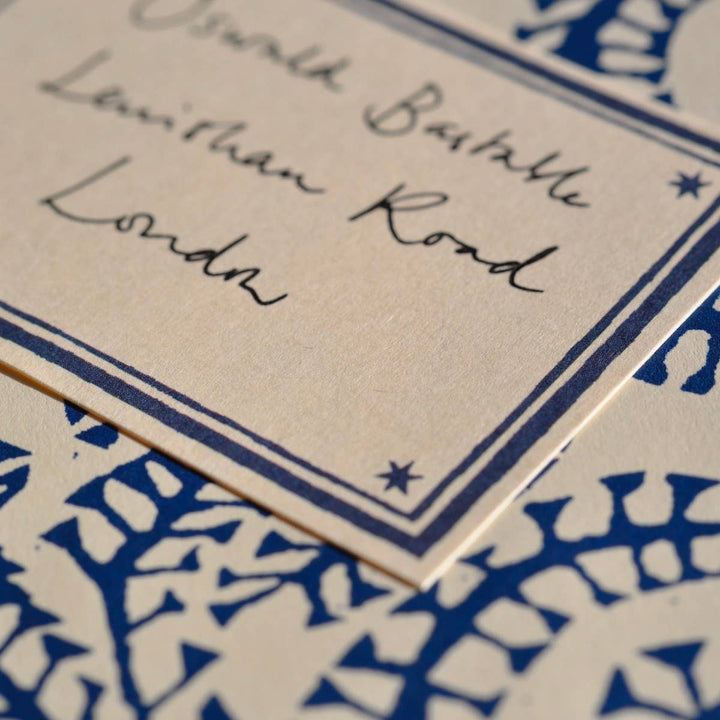 Oswald Bastable
Lewisham Road
London